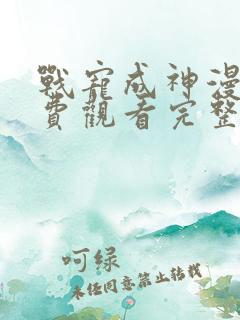 戰寵成神漫
費觀看完整
呵绿
未经同意禁止转载